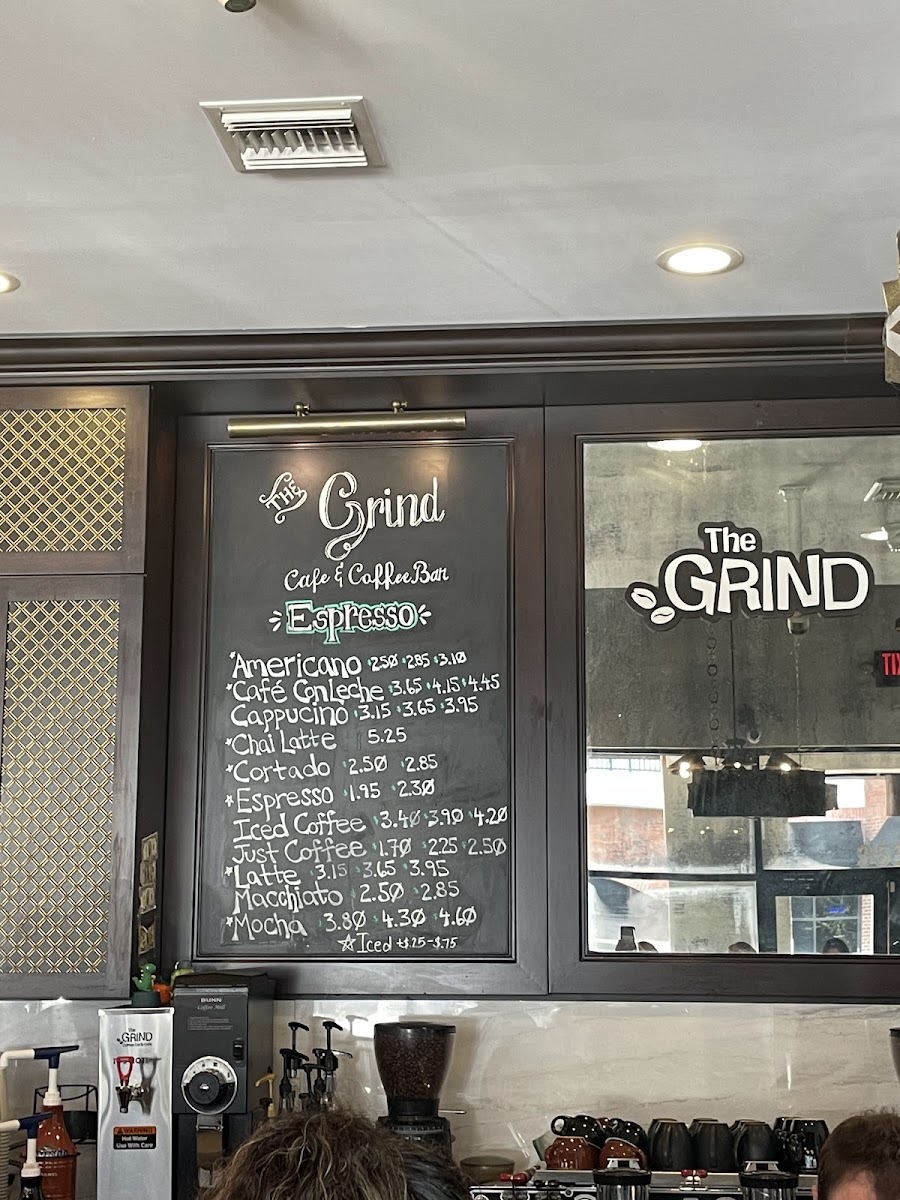 THE Grind
Cafe & Coffee Bar
Espresso
*Americano $2.50 $2.85 $3.10
*Café ConLeche $3.65 $4.15 $4.45
Cappucino $3.15 $3.65 $3.95
*Chai Latte 5.25
*Cortado $2.50 $2.85
*Espresso $1.95 $2.30
Iced Coffee $3.40 $3.90 $4.20
Just Coffee $1.70 $2.25 $2.50
*Latte $3.15 $3.65 $3.95
Macchiato $2.50 $2.85
*Mocha $3.80 $4.30 $4.60
☆Iced +$.25-$.75
The
GRIND
BUNN
Coffee Mill
The
GRIND
WARNING
Hot Water
Use With Care